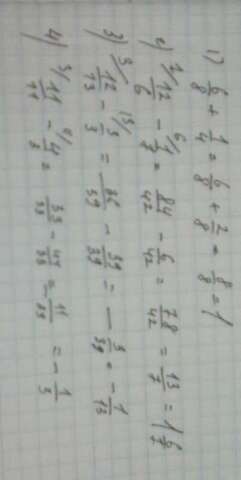 1) 6/8 + 1/4 = 6/8 + 2/8 = 8/8 = 1
2) 7/ 12/6 - 6/ 1/7 = 84/42 - 6/42 = 78/42 = 13/7 = 1 6/7
3) 3/ 12/13 - 13/ 3/3 = 36/39 - 39/39 = - 3/39 = - 1/13
4) 3/ 11/11 - 11/ 4/3 = 33/33 - 44/33 = - 11/33 = - 1/3